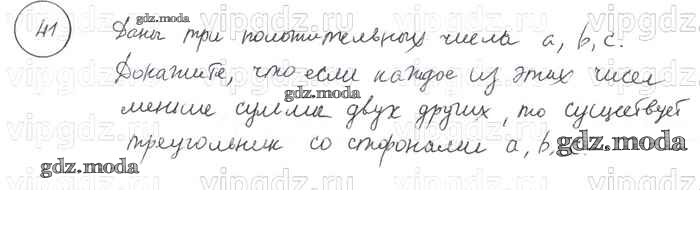 41 Даны три положительных числа a, b, c.
Докажите, что если каждое из этих чисел
меньше суммы двух других, то существует
треугольник со сторонами a, b, c.
gdz.moda
gdz.moda
gdz.moda
gdz.moda
vipgdz.ru vipgdz.ru vipgdz.ru vipgdz.ru
vipgdz.ru vipgdz.ru vipgdz.ru vipgdz.ru
vipgdz.ru vipgdz.ru vipgdz.ru vipgdz.ru